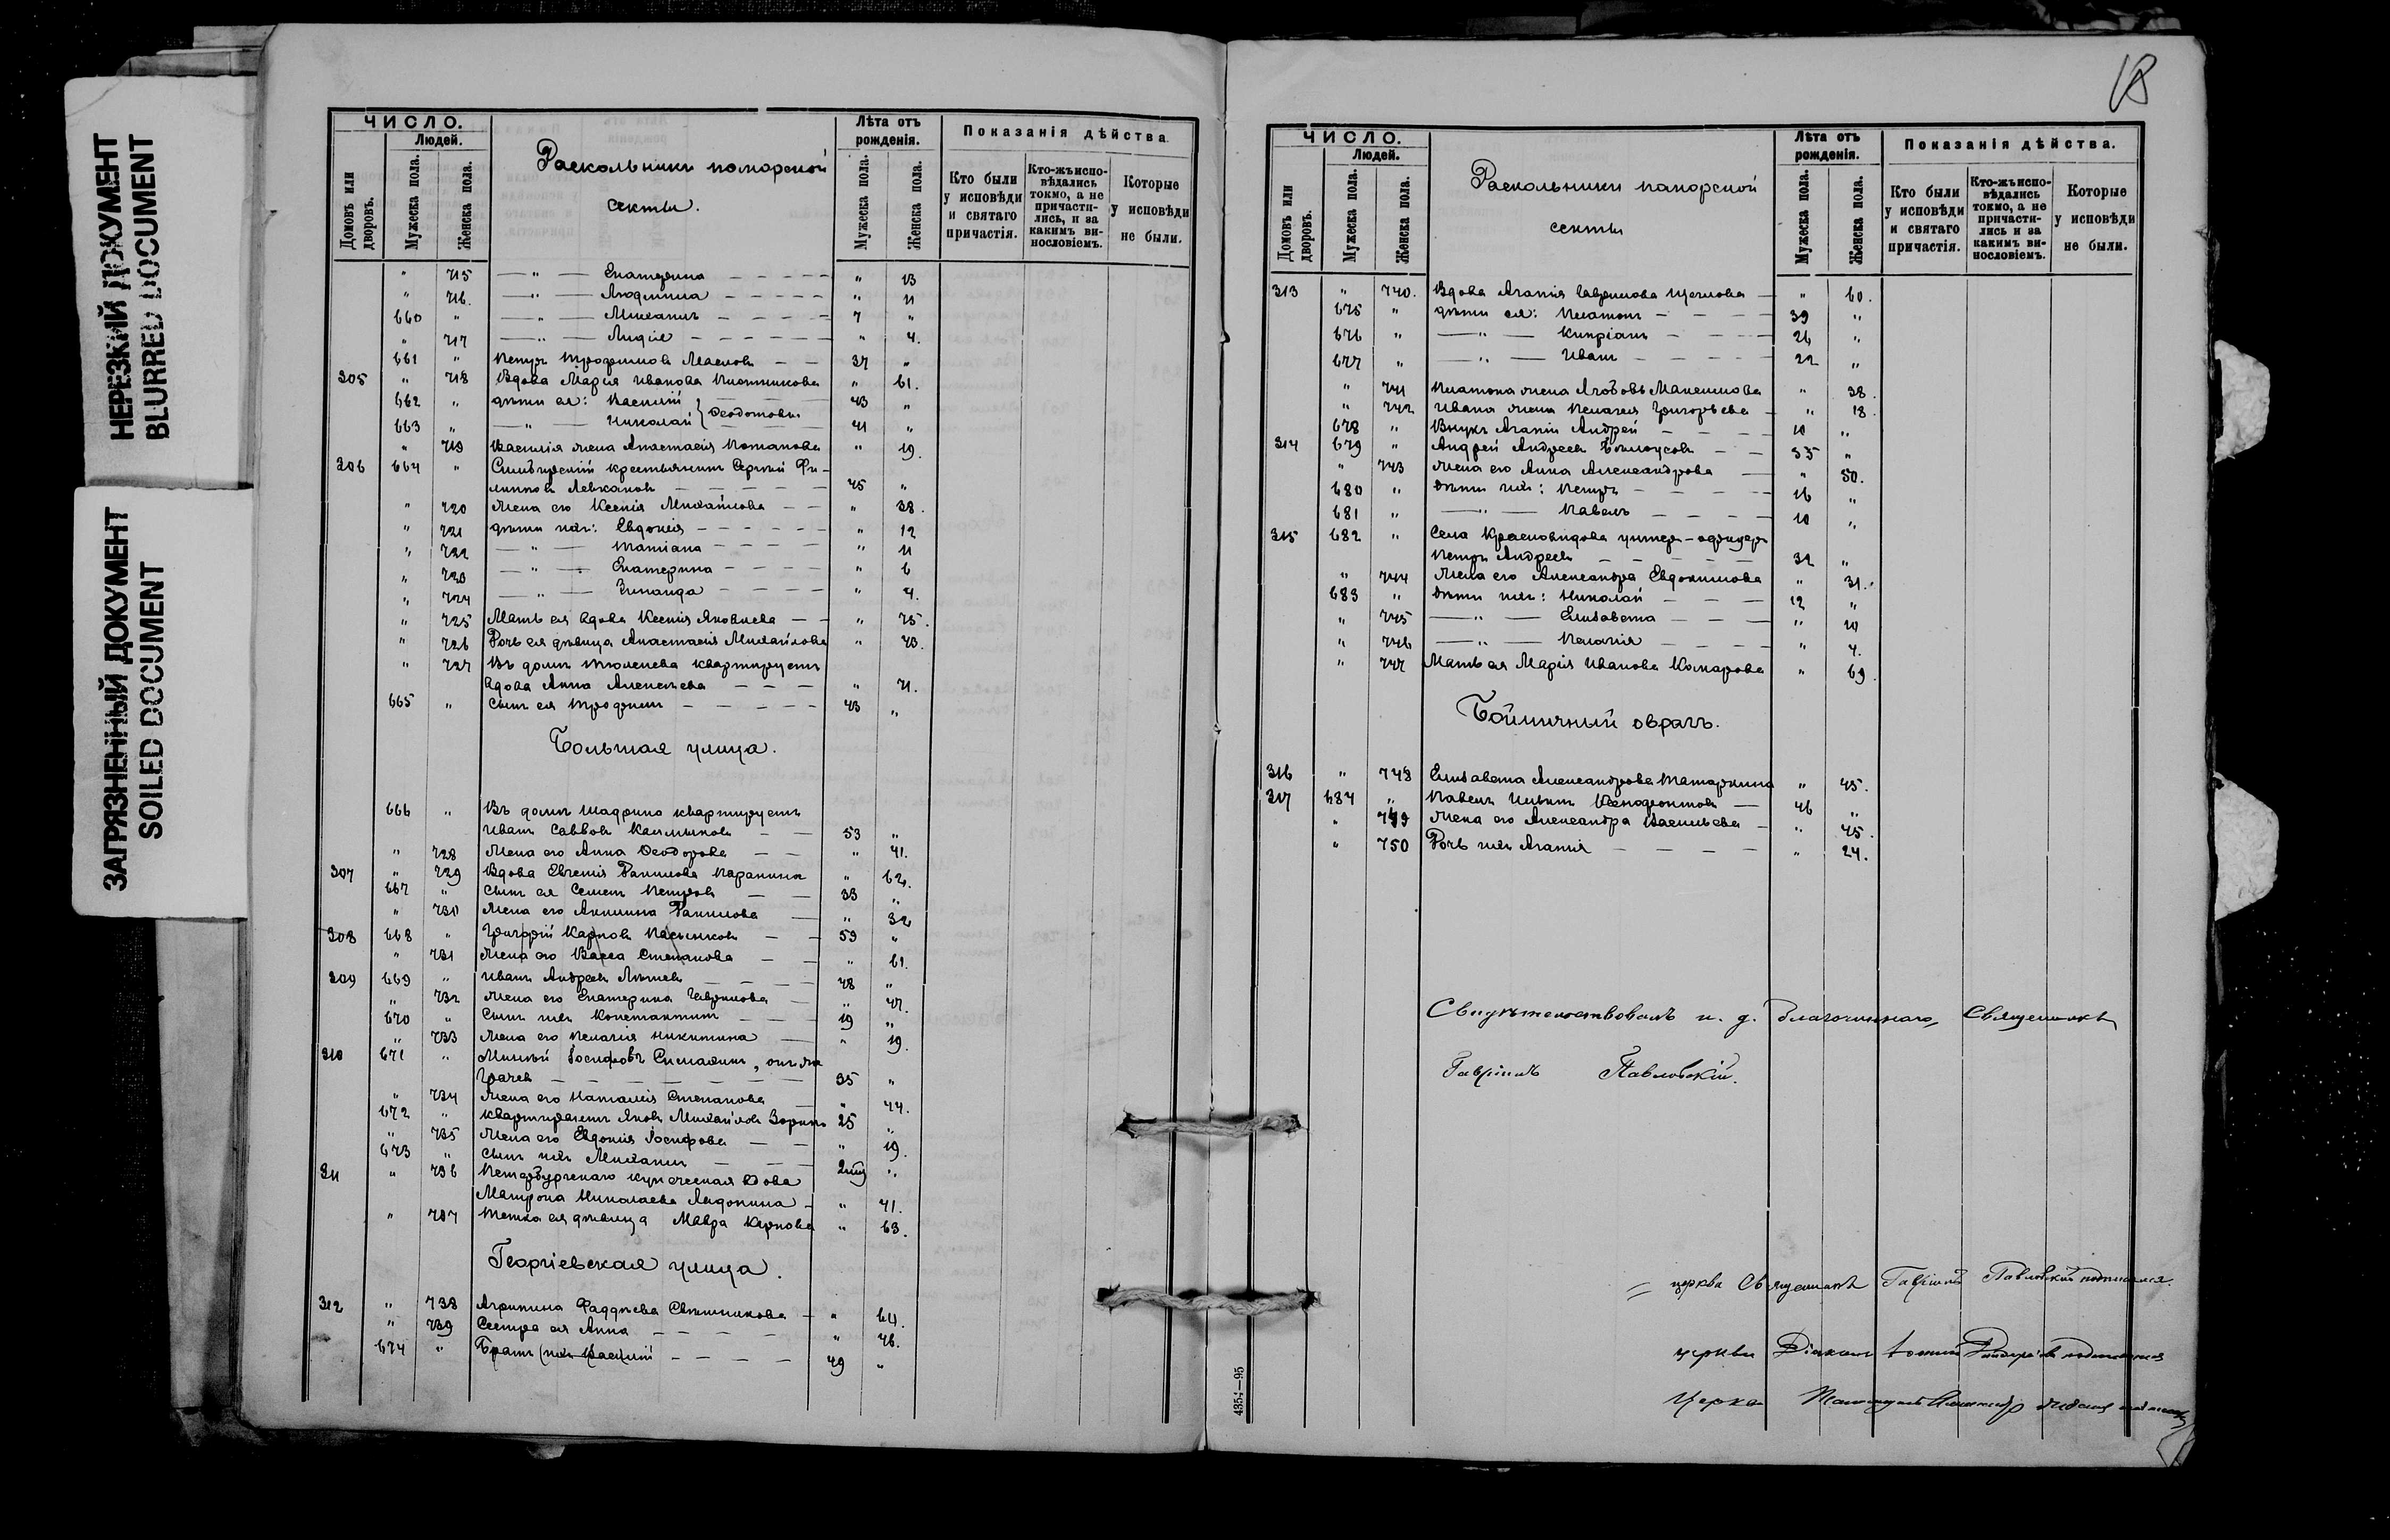 НЕРЕЗКИЙ ДОКУМЕНТ
BLURRED DOCUMENT
ЗАГРЯЗНЕННЫЙ ДОКУМЕНТ
SOILED DOCUMENT
ЧИСЛО.
Людей.
Домовъ или дворовъ.
Мужеска пола.
Женска пола.
Раскольники поморской
секты.
Лѣта отъ рожденія.
Мужеска пола.
Женска пола.
Показанія дѣйства
Кто были у исповѣди и святаго причастія.
Кто-жъ исповѣдались токмо, а не причастились, и за какимъ винословіемъ.
Которые у исповѣди не были.
" 715 — " — Екатерина " 13
" 716. — " — Людмила " 11
660 " — " — Михаилъ 7 "
" 717 — " — Лидія " 4.
661 " Петръ Трофимовъ Масловъ 37 "
305 " 718 Вдова Марія Иванова Плотникова " 61.
662 " дѣти ея: Василій 43 "
663 " — " — Николай } Ѳеодотовы 41 "
" 719 Василія жена Анастасія Потапова " 19.
306 664 " Симбирскій крестьянинъ Сергѣй Фи-
липповъ Левкановъ 45 "
" 720 Жена его Ксенія Михайлова " 38.
" 721 дѣти ихъ: Евдокія " 12
" 722 — " — Татіана " 11
" 723 — " — Екатерина " 6
" 724 — " — Зинаида " 4.
" 725 Мать ея вдова Ксенія Яковлева " 75.
" 726 Дочь ея дѣвица Анастасія Михайлова " 43.
" 727 Въ домѣ Тюленева квартируетъ
вдова Анна Алексѣева " 71.
665 " Сынъ ея Трофимъ 43 "
Большая улица.
666 " Въ домѣ Шадрина квартируетъ
Иванъ Саввовъ Калмыковъ 53 "
" 728 Жена его Анна Ѳеодорова " 41.
307 " 729 Вдова Евгенія Данилова Каранина " 62.
667 " Сынъ ея Семенъ Петровъ 33 "
" 730 Жена его Акилина Данилова " 32
308 668 " Григорій Карповъ Пасынковъ 59 "
" 731 Жена его Васса Степанова " 61.
309 669 " Иванъ Андреевъ 48 "
" 732 Жена его Екатерина Гаврилова " 47.
670 " Сынъ ихъ Константинъ 19 "
" 733 Жена его Пелагія Никитина " 19.
310 671 " Іосифовъ онъ же
Грачевъ 35 "
" 734 Жена его Наталія Степанова " 44.
672 " Квартирантъ Яковъ Михайловъ Зоринъ 25 "
" 735 Жена его Евдокія Іосифова " 19.
673 " Сынъ ихъ Михаилъ "
311 " 736 Петербургскаго купеческая вдова
Матрона Николаева Авдонина " 41.
" 737 Тетка ея дѣвица Мавра Карпова " 63.
Георгіевская улица.
312 " 738 Агрипина Фаддѣева Свѣшникова " 64.
" 739 Сестра ея Анна " 46.
674 " Братъ ихъ Василій 49 "
18
ЧИСЛО.
Людей.
Домовъ или дворовъ.
Мужеска пола.
Женска пола.
Раскольники поморской
секты
Лѣта отъ рожденія.
Мужеска пола.
Женска пола.
Показанія дѣйства.
Кто были у исповѣди и святаго причастія.
Кто-жъ исповѣдались токмо, а не причастились и за какимъ винословіемъ.
Которые у исповѣди не были.
313 " 740. Вдова Агапія Гаврилова Щеглова " 60.
675 " дѣти ея: Платонъ 39 "
676 " — " — Кипріанъ 26 "
677 " — " — Иванъ 22 "
" 741 Платона жена Любовь Максимова " 38.
" 742 Ивана жена Пелагея Григорьева " 18.
678 " Внукъ Агапіи Андрей 10 "
314 679 " Андрей Андреевъ Бѣлоусовъ 55 "
" 743 Жена его Анна Александрова " 50.
680 " Дѣти ихъ: Петръ 16 "
681 " — " — Павелъ 10 "
315 682 " Села Красновидова унтеръ-офицеръ
Петръ Андреевъ 32 "
" 744 Жена его Александра Евдокимова " 31.
683 " Дѣти ихъ: Николай 12 "
" 745 — " — Елизавета " 10
" 746 — " — Пелагія " 4.
" 747 Мать ея Марія Иванова Комарова " 69.
Бойничный оврагъ.
316 " 748 Елизавета Александрова Татаркина " 45.
317 684 " Павелъ Ильинъ Ксенофонтовъ 46 "
" 749 Жена его Александра Васильева " 45.
" 750 Дочь ихъ Агапія " 24.
Свидѣтельствовалъ и. д. благочиннаго, Священникъ
Гавріилъ Павловскій.
церкви Священникъ Гавріилъ Павловскій подписался.
церкви Діаконъ подписался
Церкви
4354—95